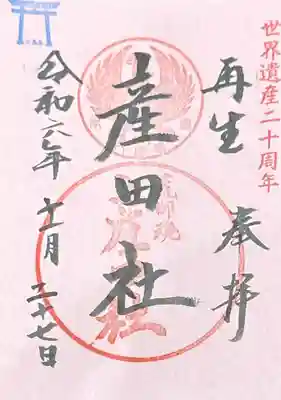 世界遺産二十周年
再生
奉拝
産田社
令和六年
十一月
二十七日